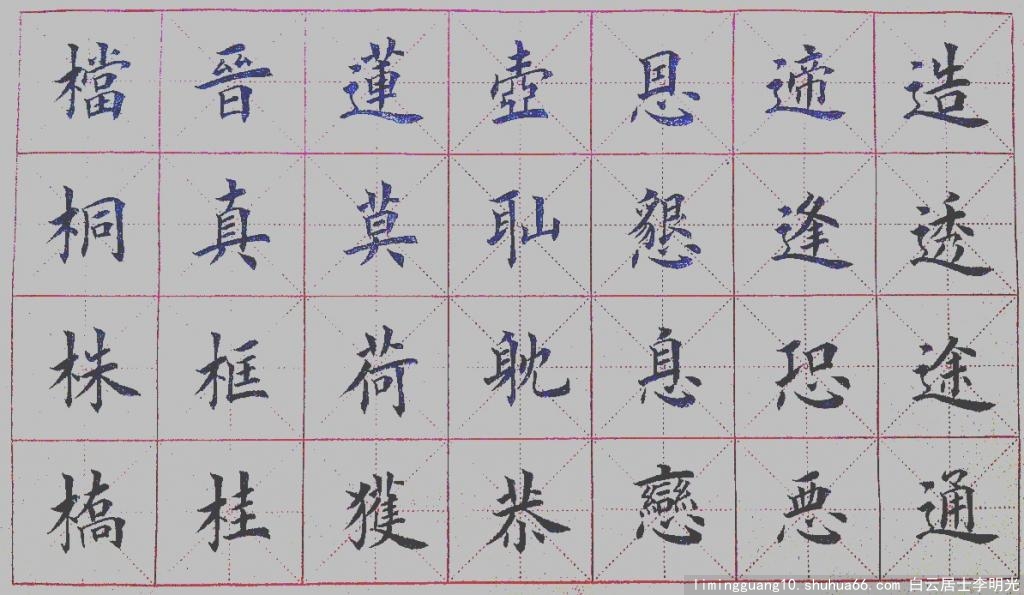 造透途通
遆逢恐恶
恩懇息戀
壺耻耽恭
蓮莫荷獲
晉真框桂
檔桐株橋
limingguang10.shuhua66.com 白云居士李明光